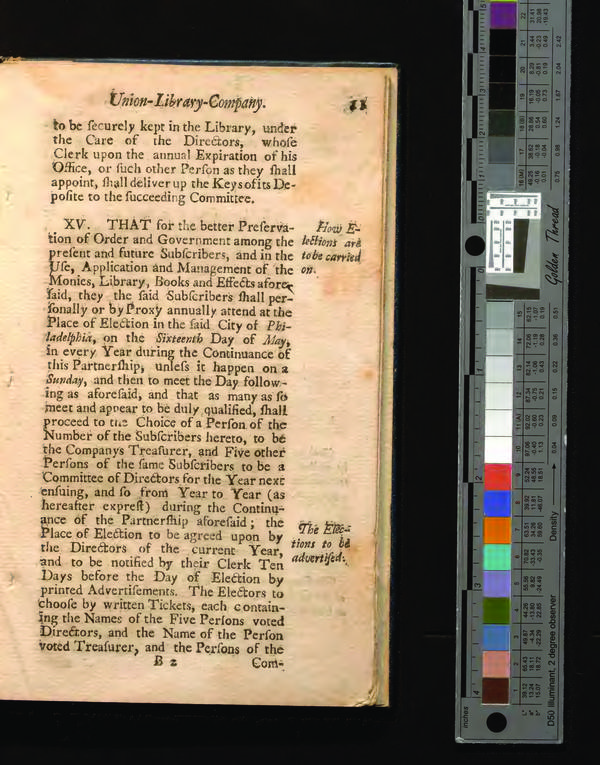 Union-Library-Company. 11
to be ſecurely kept in the Library, under
the Care of the Directors, whoſe
Clerk upon the annual Expiration of his
Office, or ſuch other Perſon as they ſhall
appoint, ſhall deliver up the Keys of its De-
poſite to the ſucceeding Committee.
XV. THAT for the better Preſerva-
tion of Order and Government among the
preſent and future Subſcribers, and in the
Uſe, Application and Management of the
Monies, Library, Books and Effects afore-
ſaid, they the ſaid Subſcribers ſhall per-
ſonally or by Proxy annually attend at the
Place of Election in the ſaid City of Phi-
ladelphia, on the Sixteenth Day of May,
in every Year during the Continuance of
this Partnerſhip, unleſs it happen on a
Sunday, and then to meet the Day follow-
ing as aforeſaid, and that as many as ſo
meet and appear to be duly qualified, ſhall
proceed to the Choice of a Perſon of the
Number of the Subſcribers hereto, to be
the Companys Treaſurer, and Five other
Perſons of the ſame Subſcribers to be a
Committee of Directors for the Year next
enſuing, and ſo from Year to Year (as
hereafter expreſt) during the Continu-
ance of the Partnerſhip aforeſaid; the
Place of Election to be agreed upon by
the Directors of the current Year,
and to be notified by their Clerk Ten
Days before the Day of Election by
printed Advertiſements. The Electors to
chooſe by written Tickets, each contain-
ing the Names of the Five Perſons voted
Directors, and the Name of the Perſon
voted Treaſurer, and the Perſons of the
B 2 Com-
How E-
lections are
to be carried
on.
The Elec-
tions to be
advertiſed.
Golden Thread
Density
D50 Illuminant, 2 degree observer
inches